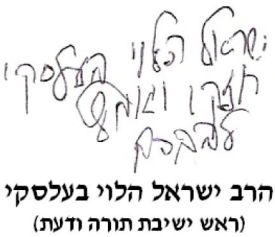 ישראל הלוי בעלסקי
חזקו ואמץ
לבבכם
הרב ישראל הלוי בעלסקי
(ראש ישיבת תורה ודעת)